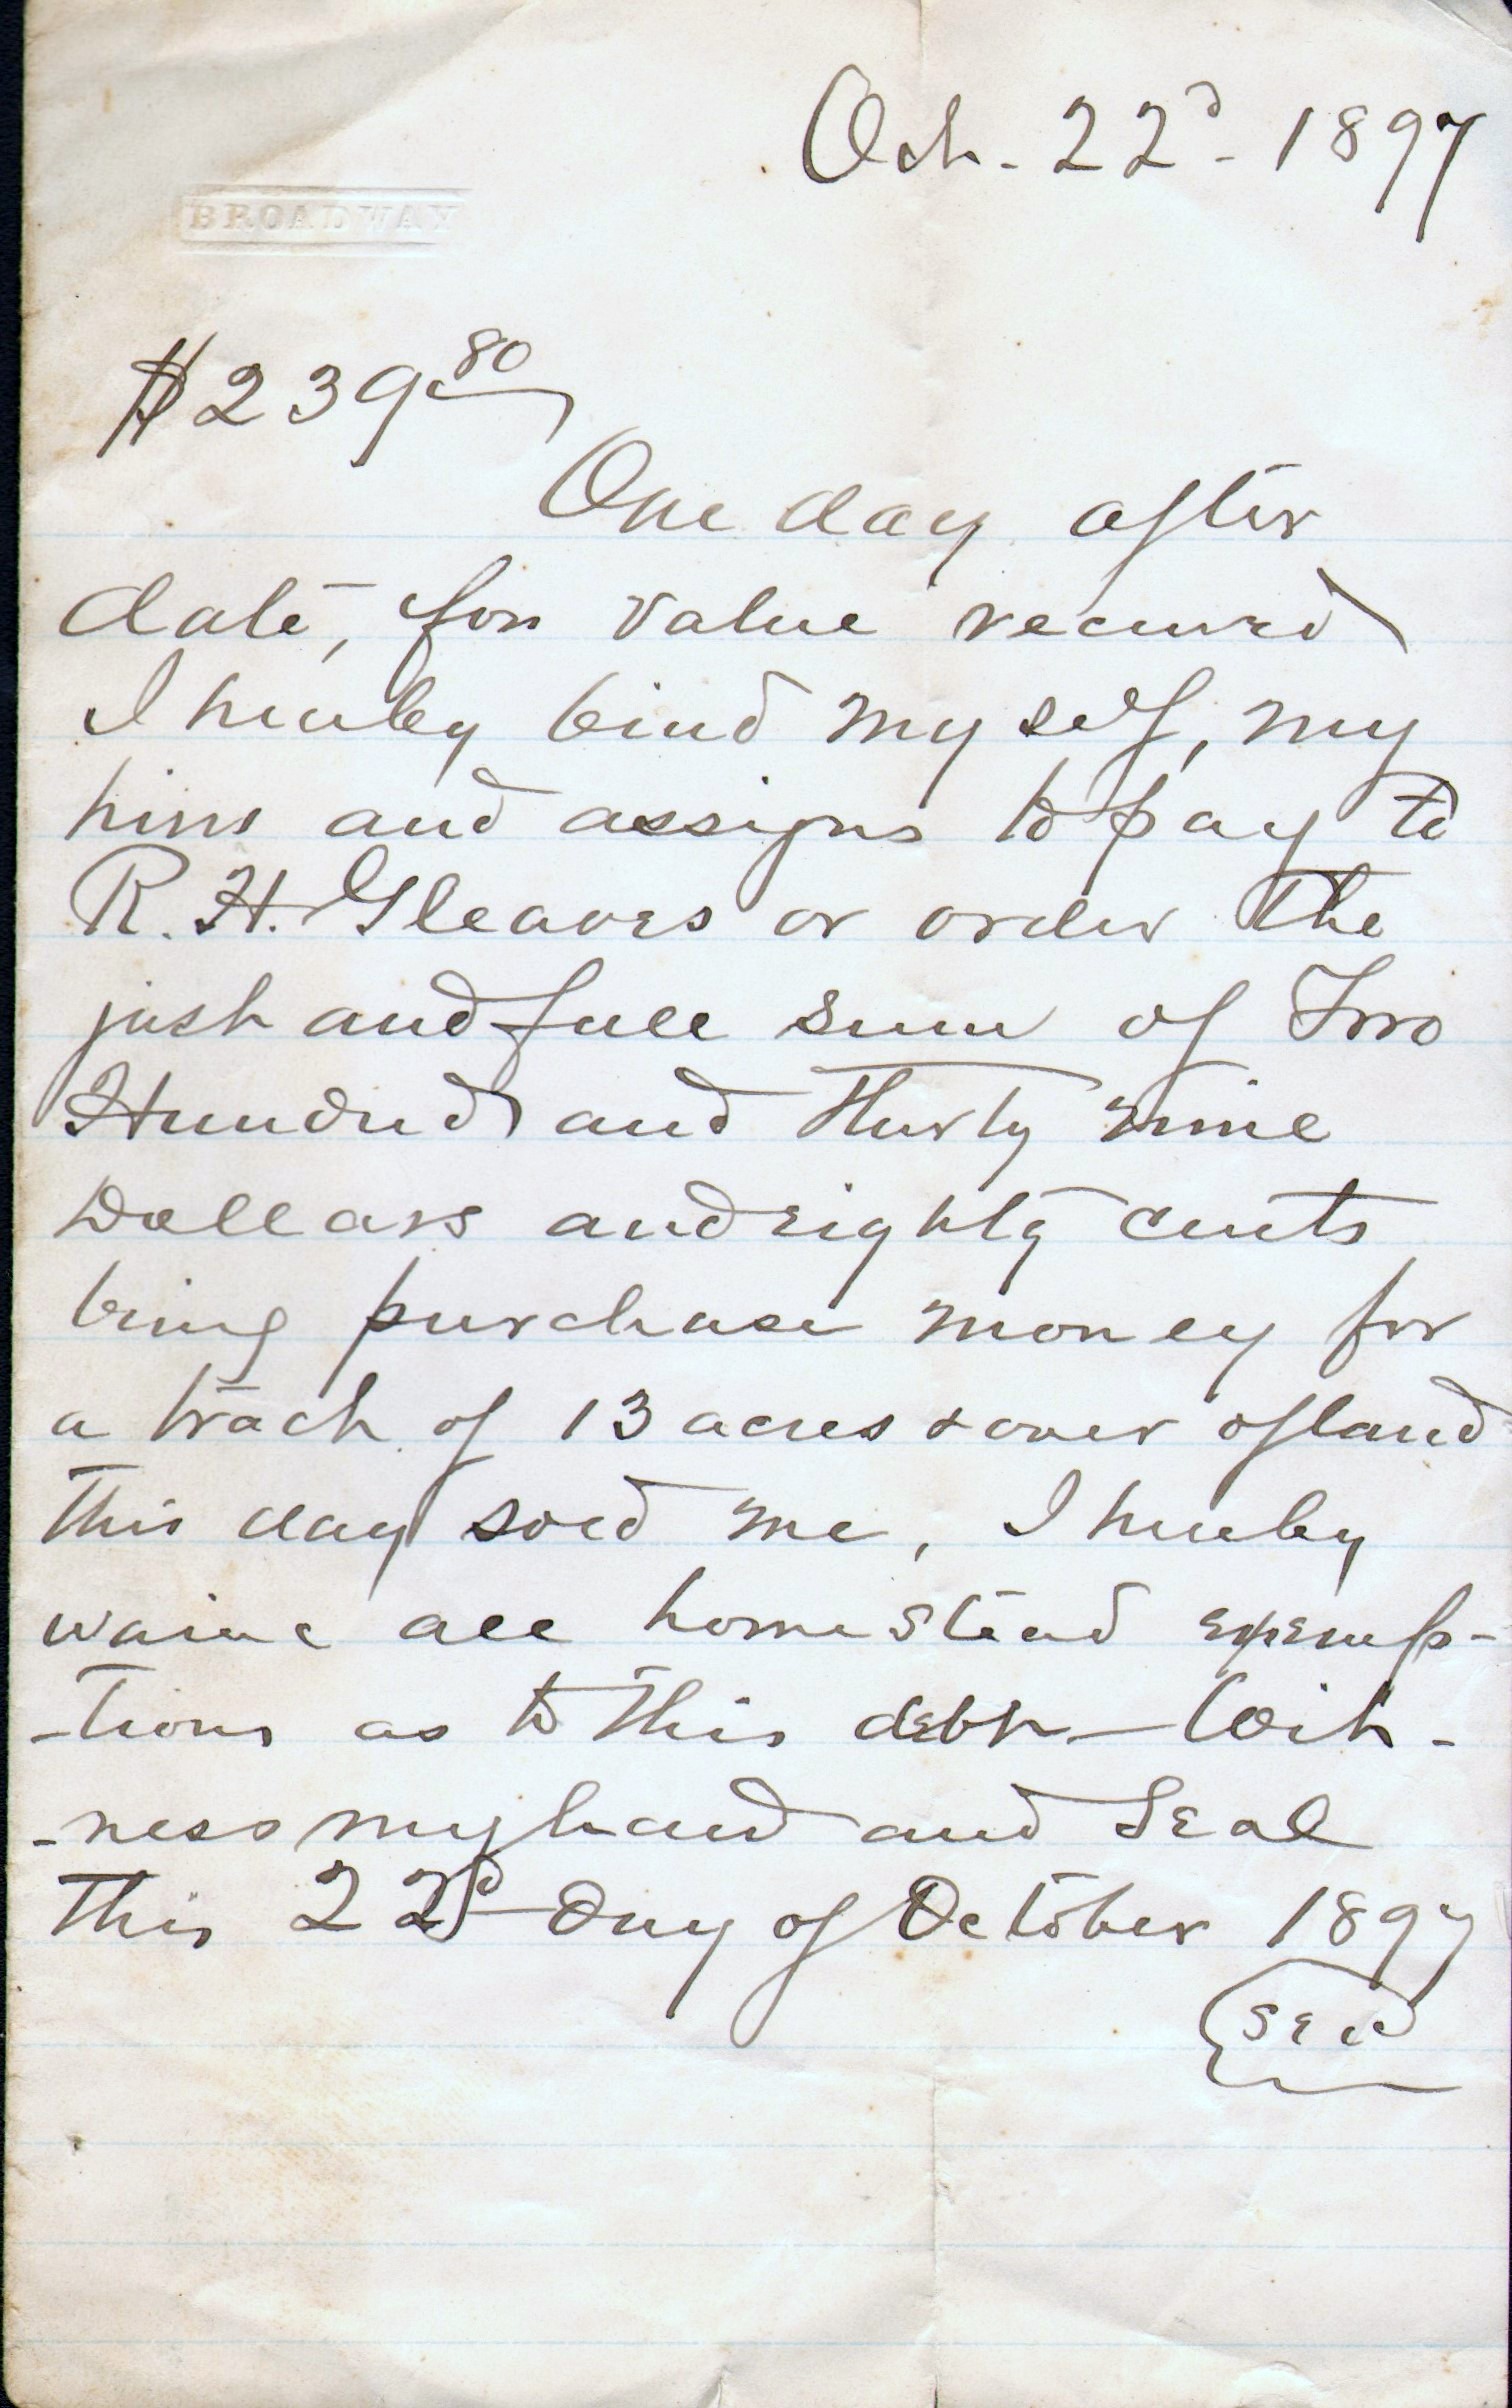 Oct. 22d - 1897
BROADWAY
$239 80
One day after
date, for value received
I hereby bind myself, my
heirs and assigns to pay to
R. H. Gleaves or order the
just and full sum of Two
Hundred and Thirty nine
Dollars and eighty cents
being purchase money for
a tract of 13 acres & over of land
this day sold me, I hereby
waive all homestead exemp-
-tions as to this debt - Wit-
-ness my hand and Seal
this 22d day of October 1897
Seal